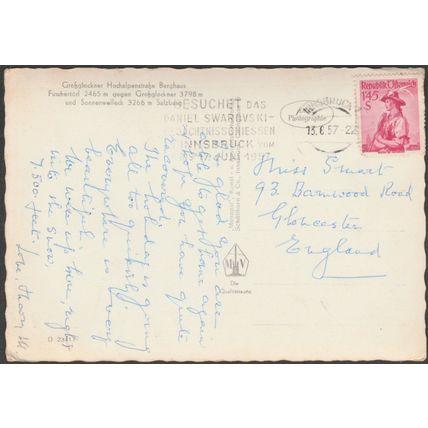 Großglockner Hochalpenstraße Berghaus
Fuschertörl 2465 m gegen Großglockner 3798 m
und Sonnenwelleck 3266 m Salzburg
BESUCHET DAS
DANIEL SWAROVSKI-
GEDÄCHTNISSCHIESSEN
INNSBRUCK VOM
JUNI 1957
Photographie
INNSBRUCK
13.6.57
REPUBLIK ÖSTERREICH
1'45
S
am glad you are
able to get home again
& hope you have quite
recovered.
The holiday is going
all too quickly.
Everywhere is very
beautiful.
We were up here, right
into the snow,
7,500 feet.
Love,
Miss Smart
93, Barnwood Road
Gloucester
England
Die
Qualitätsmarke